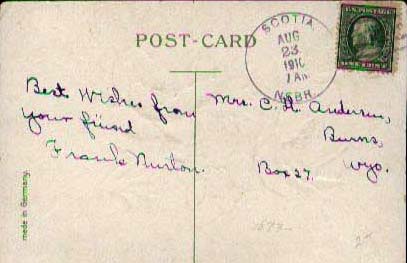 POST-CARD
SCOTIA
AUG
23
1910
7 AM
NEBR.
U.S. POSTAGE
ONE CENT
Best Wishes from
your friend
Frank Nurton.
Mrs. C. H. Andersen,
Burns,
Wyo.
Box 27.
made in Germany.